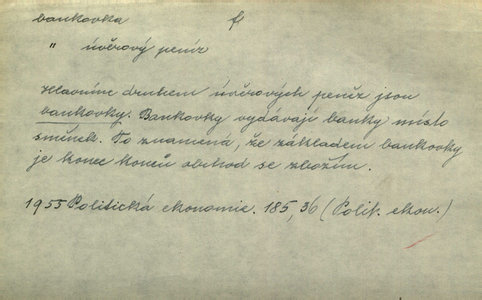 bankovka f
" úvěrový peníz
Hlavním druhem úvěrových peněz jsou
bankovky. Bankovky vydávají banky místo
směnek. To znamená, že základem bankovky
je konec konců obchod se zbožím.
1955 Politická ekonomie. 185, 36 (Polit. ekon.)